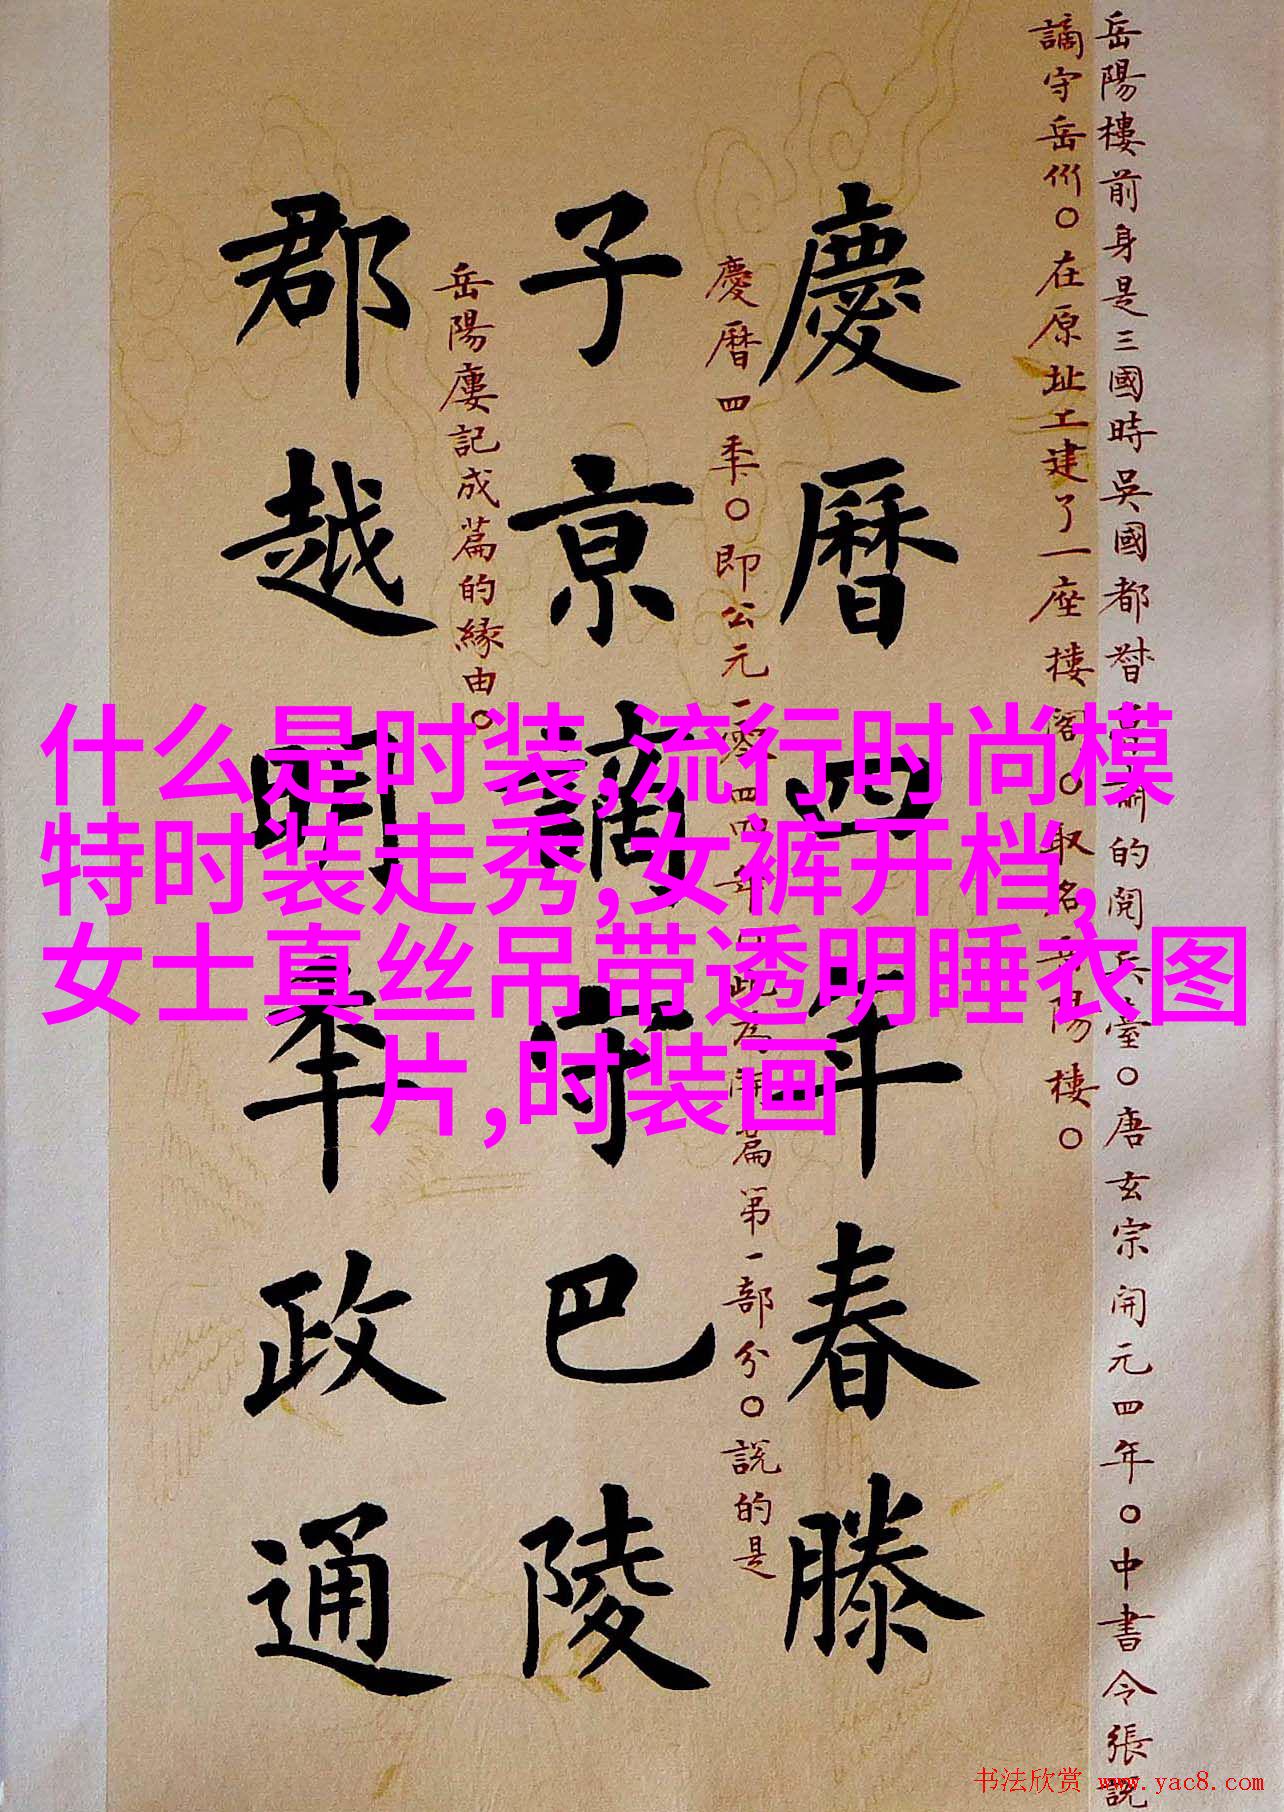 岳陽樓前身是三國時吳國都督魯肅的閱兵臺○唐玄宗開元四年○中書令張說
謫守岳州○在原址工建了一座樓閣○取名岳陽樓○
慶暦四年春滕
慶暦四年○即公元一零四四年○此為開篇第一部分○說的是
子京謫守巴陵
岳陽樓記成篇的緣由○
郡越明年政通
什么是时装,流行时尚模
特时装走秀,女裤开档,
女士真丝吊带透明睡衣图
片,时装画
书法欣赏 www.yac8.com